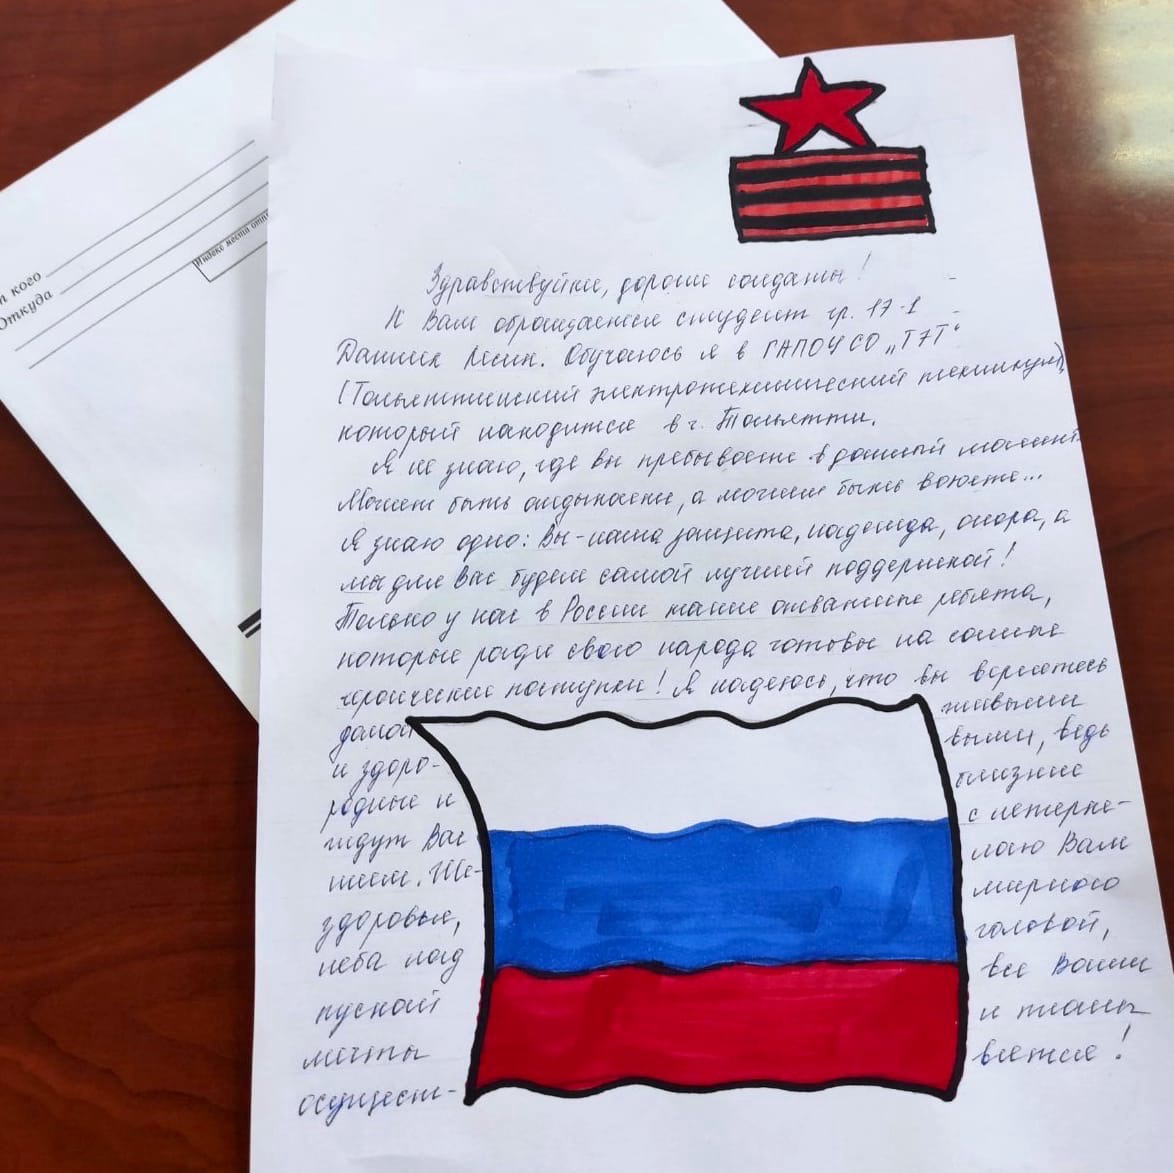 т кого
Откуда
Индекс места отпр
Здравствуйте, дорогие солдаты!
К Вам обращается студент гр. 17-1
Данила Лесин. Обучаюсь я в ГАПОУ СО „ТЭТ“
(Тольяттинский электротехнический техникум),
который находится в г. Тольятти.
Я не знаю, где вы пребываете в данный момент.
Может быть отдыхаете, а может быть воюете...
Я знаю одно: Вы - наша защита, надежда, опора, а
мы для Вас будем самой лучшей поддержкой!
Только у нас в России такие отважные ребята,
которые ради своего народа готовы на самые
героические поступки! Я надеюсь, что вы вернетесь
домой живыми
и здоро- выми, ведь
родные и близкие
ждут Вас с нетерпе-
нием. Же- лаю Вам
здоровья, мирного
неба над головой,
пускай все Ваши
мечты и планы
осущест- вятся!